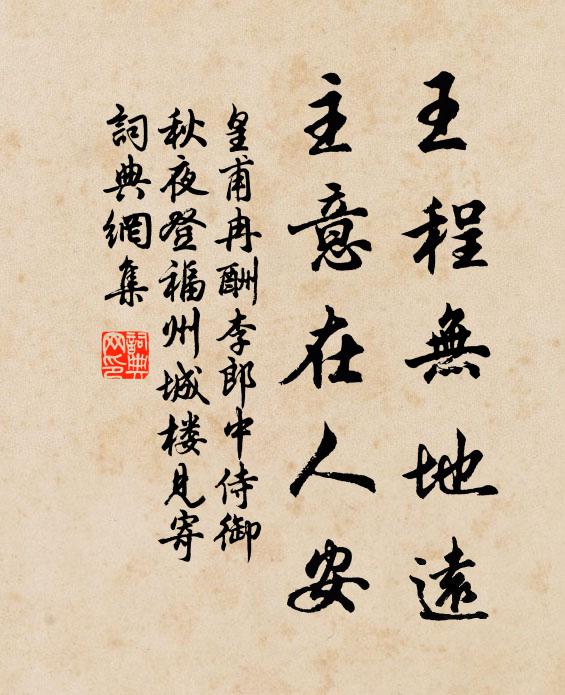 王程無地遠
主意在人安
皇甫冉酬李郎中侍御
秋夜登福州城楼見寄
詞典網集
詞典网印